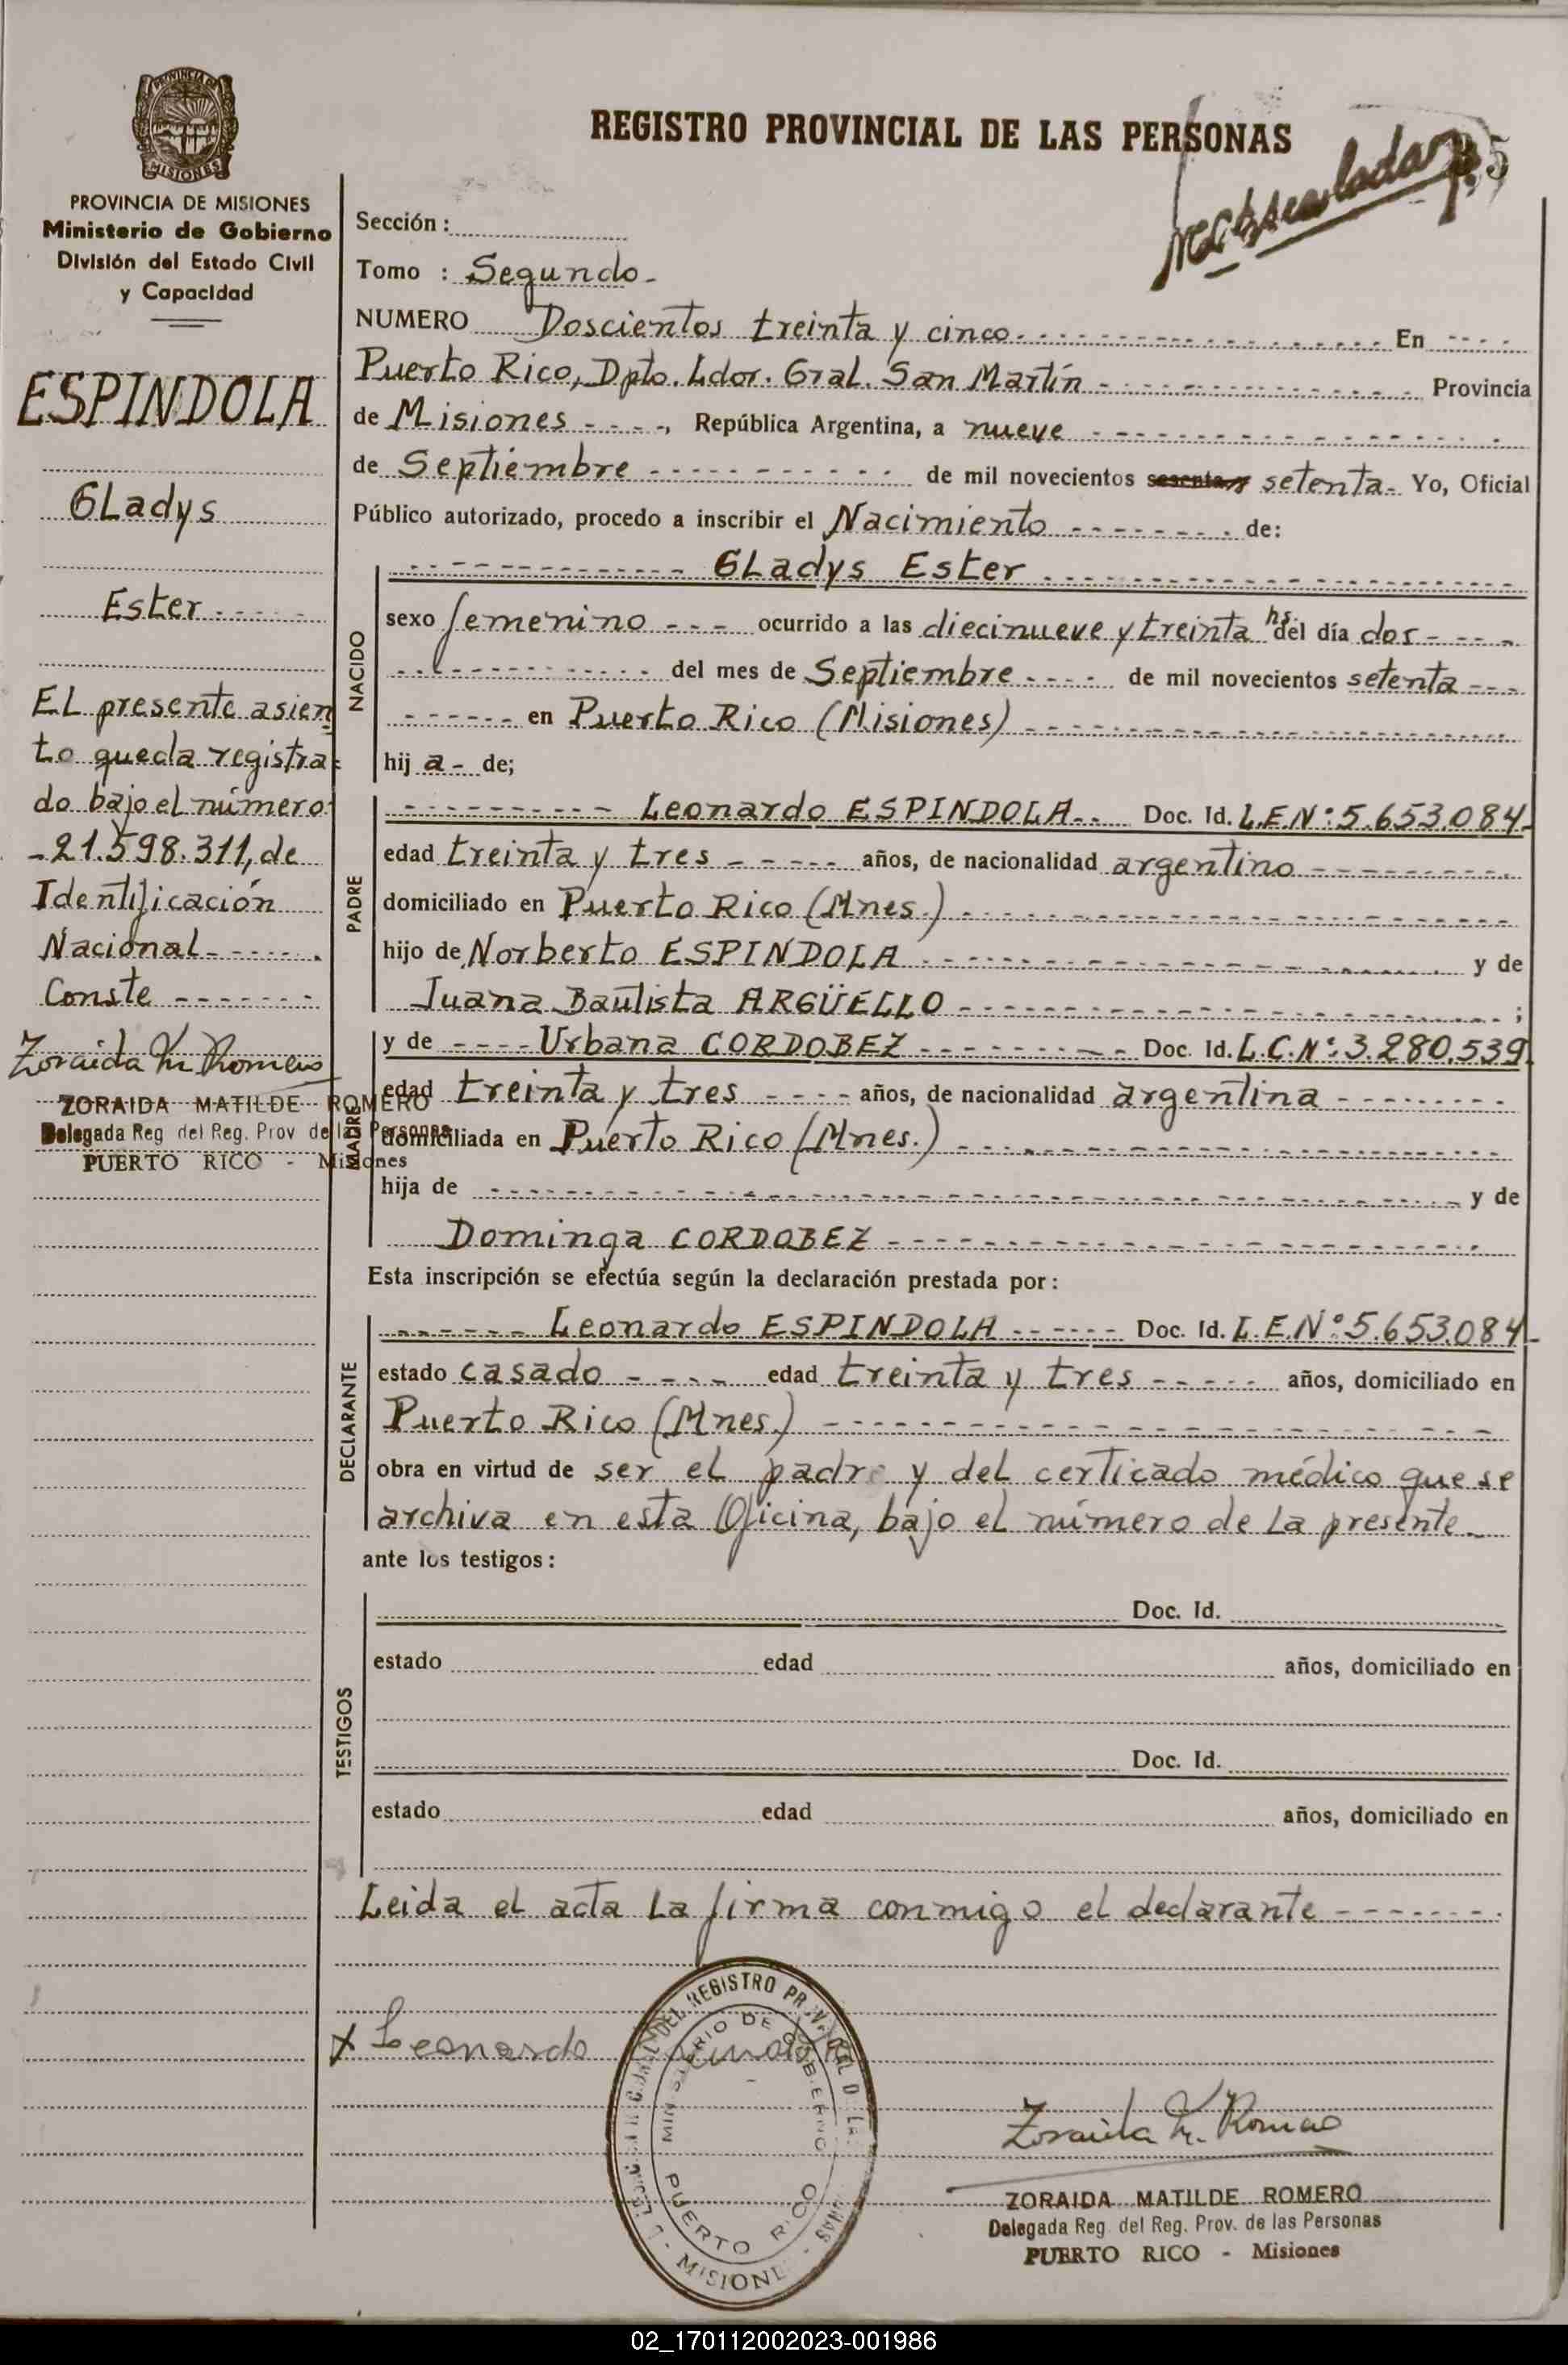 REGISTRO PROVINCIAL DE LAS PERSONAS
PROVINCIA DE MISIONES
Ministerio de Gobierno
División del Estado Civil
y Capacidad
ESPINDOLA
Gladys
Ester
El presente asien
to queda registra
do bajo el número
21.598.311, de
Identificación
Nacional
Conste
Zoraida M. Romero
ZORAIDA MATILDE ROMERO
Delegada Reg. del Reg. Prov de las Personas
PUERTO RICO - Misiones
Sección:
Tomo : Segundo
NUMERO Doscientos treinta y cinco En
Puerto Rico, Dpto. Ldor. Gral. San Martín Provincia
de Misiones , República Argentina, a nueve
de Septiembre de mil novecientos sesenta y setenta Yo, Oficial
Público autorizado, procedo a inscribir el Nacimiento de:
NACIDO
Gladys Ester
sexo femenino ocurrido a las diecinueve y treinta hs del día dos
del mes de Septiembre de mil novecientos setenta
en Puerto Rico (Misiones)
hij a de;
PADRE
Leonardo ESPINDOLA Doc. Id. L.E.Nº:5.653.084
edad treinta y tres años, de nacionalidad argentino
domiciliado en Puerto Rico (Mnes.)
hijo de Norberto ESPINDOLA y de
Juana Bautista ARGÜELLO ;
MADRE
y de Urbana CORDOBEZ Doc. Id. L.C.Nº:3.280.539
edad treinta y tres años, de nacionalidad argentina
domiciliada en Puerto Rico (Mnes.)
hija de y de
Dominga CORDOBEZ
Esta inscripción se efectúa según la declaración prestada por:
DECLARANTE
Leonardo ESPINDOLA Doc. Id. L.E.Nº:5.653.084
estado casado edad treinta y tres años, domiciliado en
Puerto Rico (Mnes.)
obra en virtud de ser el padre y del certicado médico que se
archiva en esta Oficina, bajo el número de la presente
ante los testigos:
TESTIGOS
Doc. Id.
estado edad años, domiciliado en
Doc. Id.
estado edad años, domiciliado en
Leida el acta la firma conmigo el declarante
x Leonardo
MINISTERIO DE GOBIERNO
PUERTO RICO
Zoraida M. Romero
ZORAIDA MATILDE ROMERO
Delegada Reg. del Reg. Prov. de las Personas
PUERTO RICO - Misiones
02_170112002023-001986